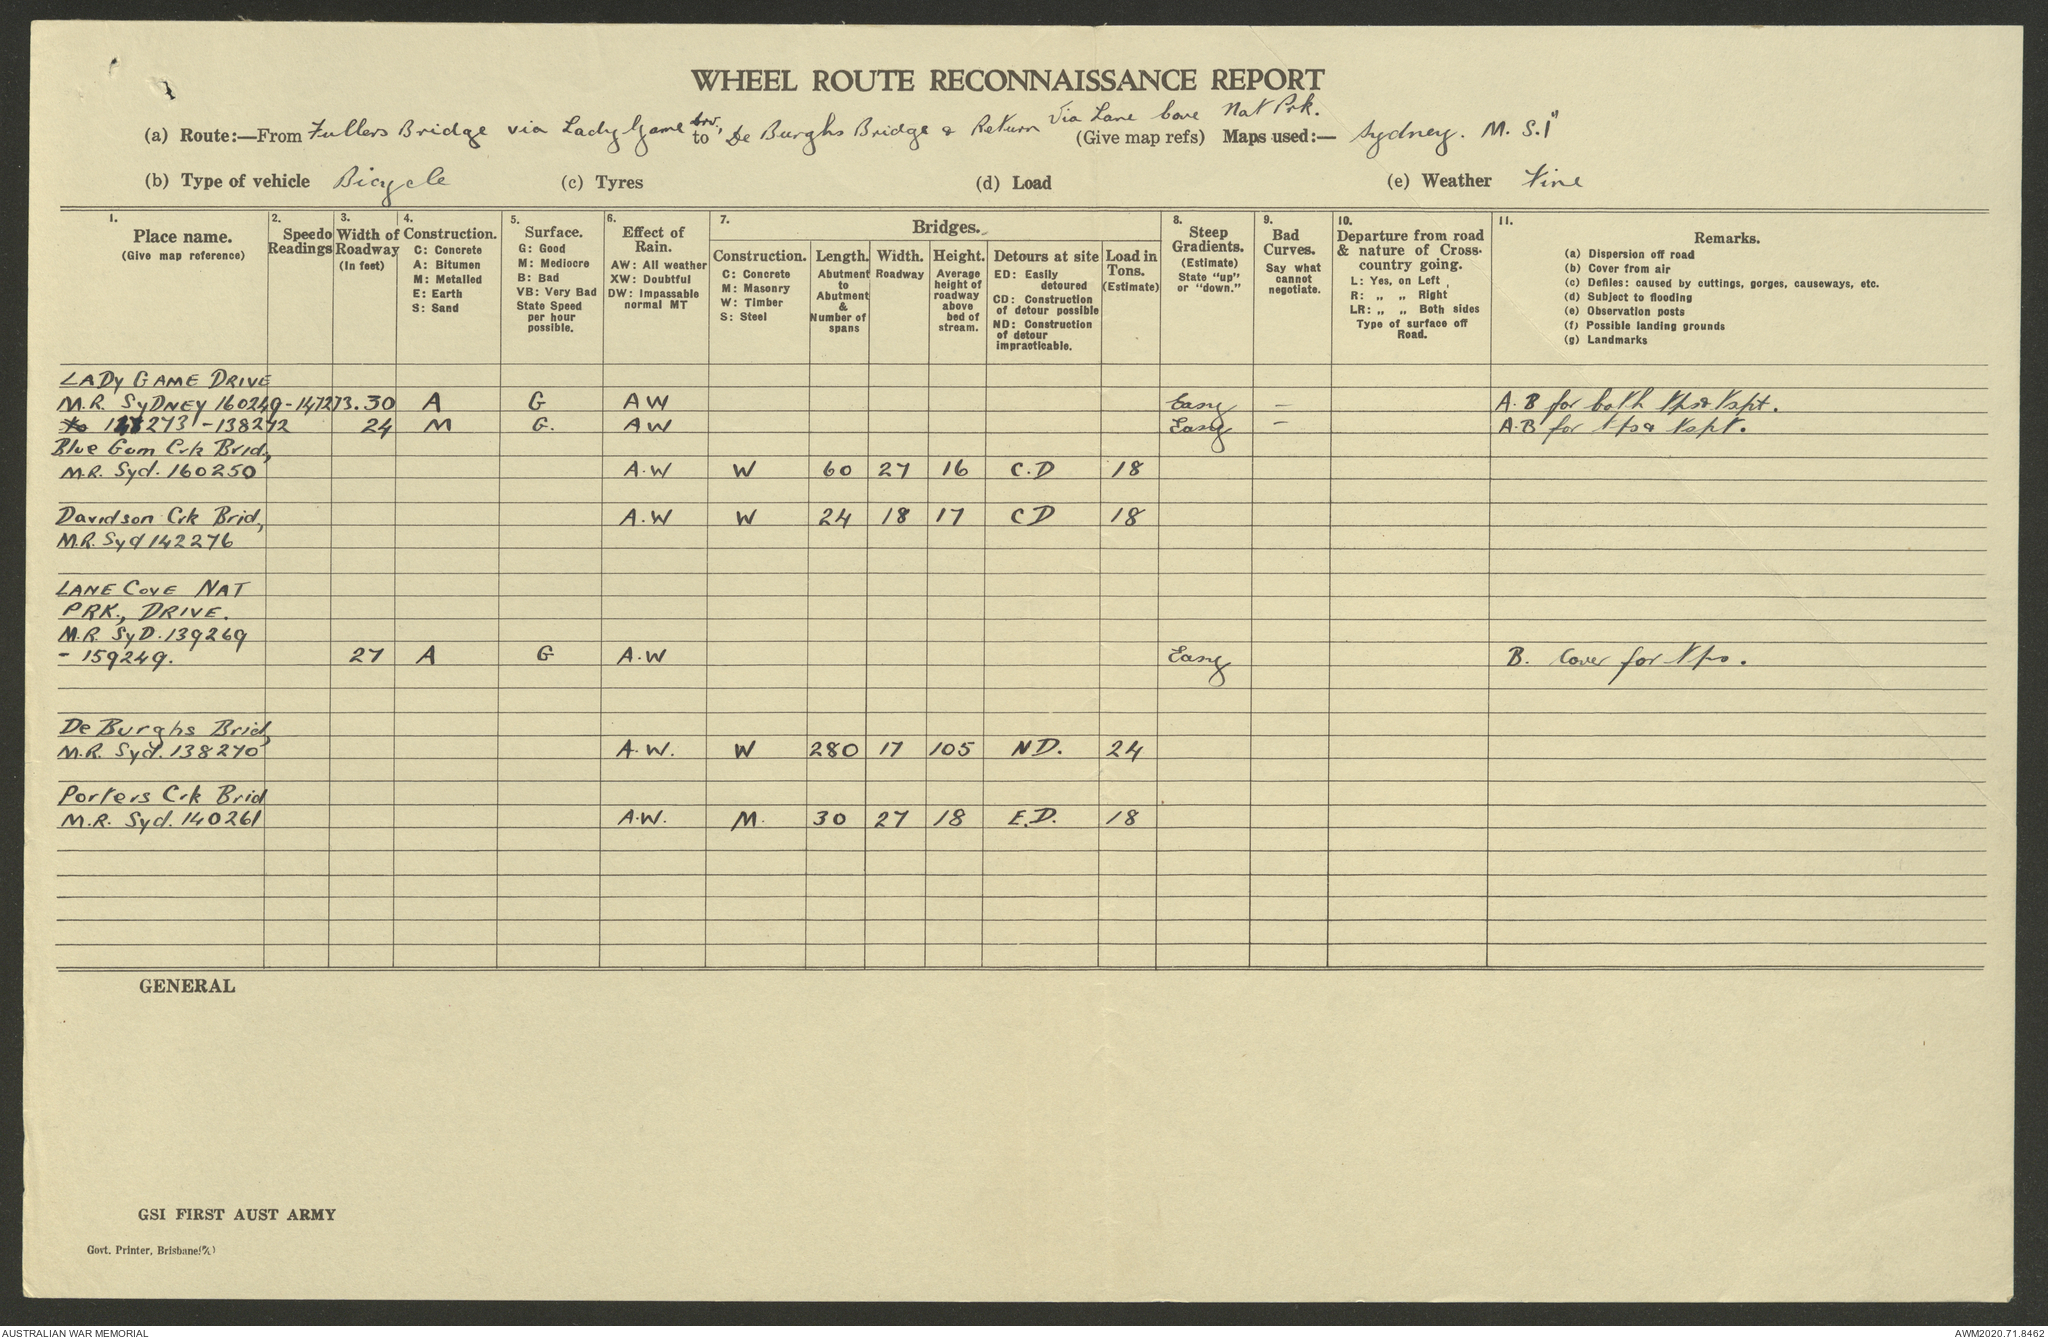 WHEEL ROUTE RECONNAISSANCE REPORT
(a) Route:—From Fullers Bridge via Lady Game Drv. to De Burghs Bridge & Return Via Lane Cove Nat Prk. (Give map refs) Maps used:— Sydney. M. S. 1"
(b) Type of vehicle Bicycle (c) Tyres (d) Load (e) Weather Fine
1. Place name. (Give map reference)
2. Speedo Readings
3. Width of Roadway (In feet)
4. Construction.
C: Concrete
A: Bitumen
M: Metalled
E: Earth
S: Sand
5. Surface.
G: Good
M: Mediocre
B: Bad
VB: Very Bad
State Speed per hour possible.
6. Effect of Rain.
AW: All weather
XW: Doubtful
DW: Impassable normal MT
7. Bridges.
Construction.
C: Concrete
M: Masonry
W: Timber
S: Steel
Length. Abutment to Abutment & Number of spans
Width. Roadway
Height. Average height of roadway above bed of stream.
Detours at site
ED: Easily detoured
CD: Construction of detour possible
ND: Construction of detour impracticable.
Load in Tons. (Estimate)
8. Steep Gradients. (Estimate) State "up" or "down."
9. Bad Curves. Say what cannot negotiate.
10. Departure from road & nature of Cross-country going.
L: Yes, on Left
R: „ „ Right
LR: „ „ Both sides
Type of surface off Road.
11. Remarks.
(a) Dispersion off road
(b) Cover from air
(c) Defiles: caused by cuttings, gorges, causeways, etc.
(d) Subject to flooding
(e) Observation posts
(f) Possible landing grounds
(g) Landmarks
LADY GAME DRIVE
M.R. SYDNEY 160249-147273. 30 A G AW Easy — A.B for both tps & tspt.
273 - 138272 24 M G. AW Easy — A.B for tps & tspt.
Blue Gum Crk Brid,
M.R. Syd. 160250 A.W W 60 27 16 C.D 18
Davidson Crk Brid, A.W W 24 18 17 CD 18
M.R. Syd 142276
LANE COVE NAT
PRK., DRIVE.
M.R. SYD. 139269
- 159249. 27 A G A.W Easy B. Cover for tps.
De Burghs Brid,
M.R. Syd. 138270 A.W. W 280 17 105 ND. 24
Porters Crk Brid
M.R. Syd. 140261 A.W. M. 30 27 18 E.D. 18
GENERAL
GSI FIRST AUST ARMY
Govt. Printer, Brisbane
AUSTRALIAN WAR MEMORIAL
AWM2020.71.8462